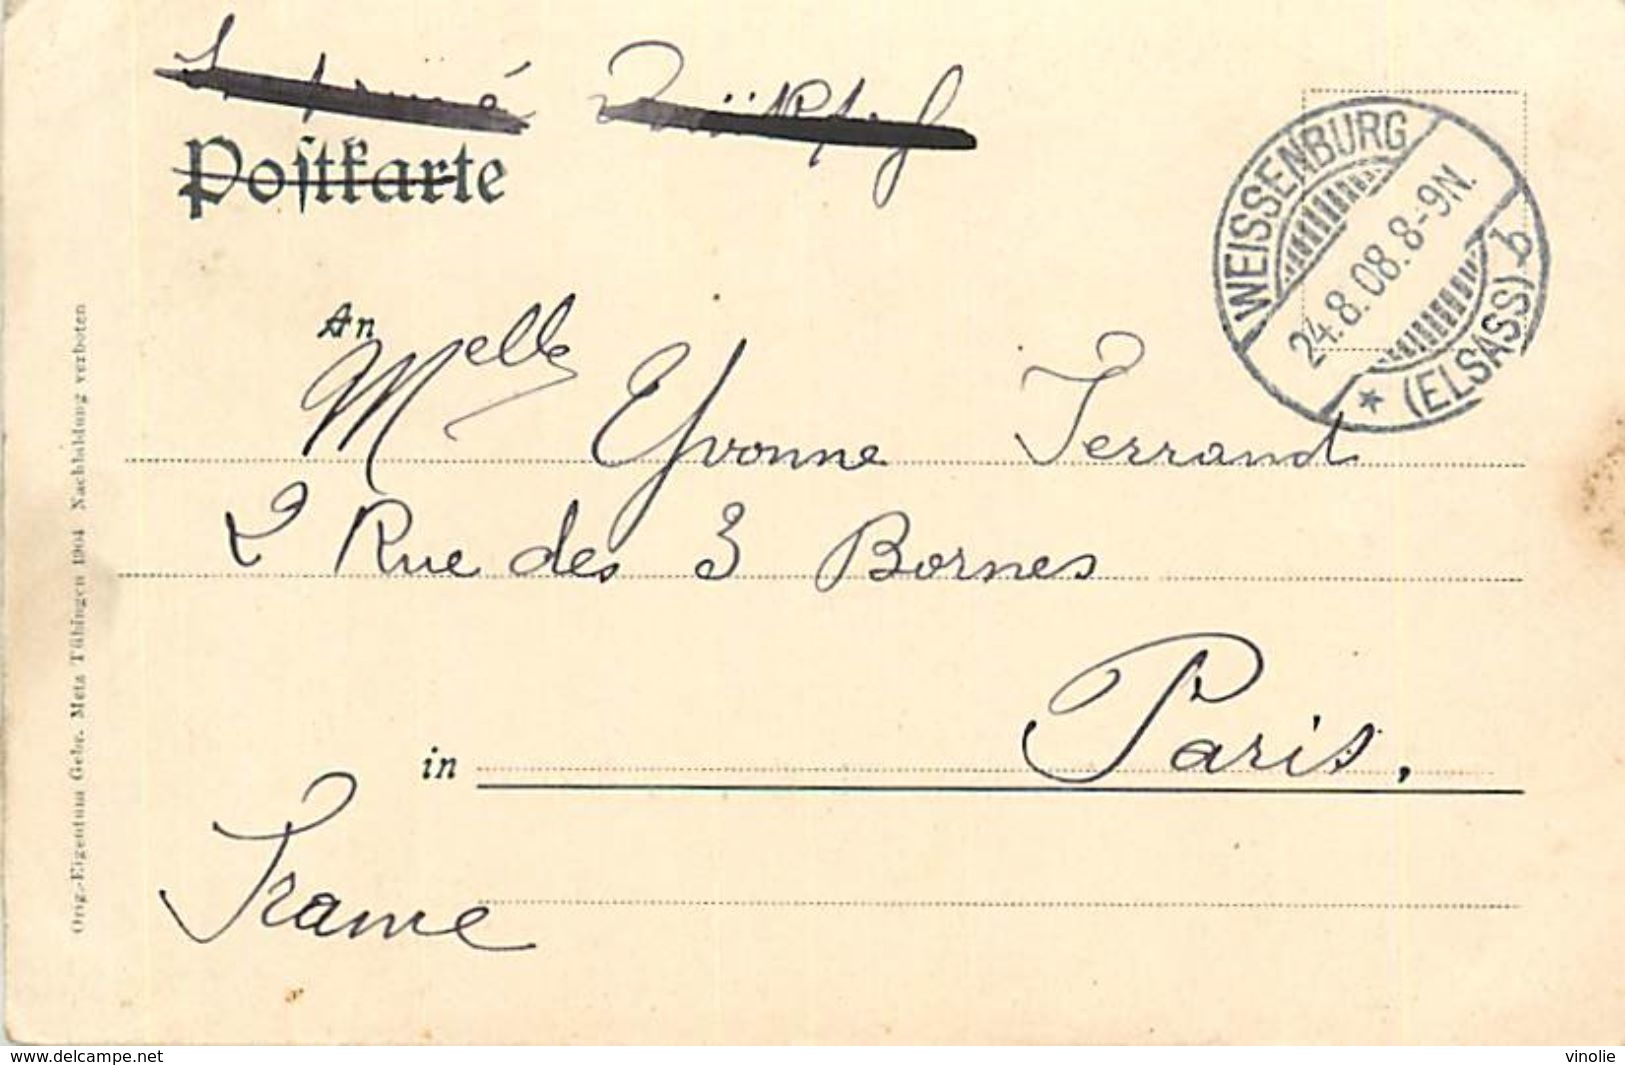 Imprimé
Postkarte
WEISSENBURG
24.8.08. 8-9N.
* (ELSASS) b
An
Melle Yvonne Ferrand
2 Rue des 3 Bornes
in Paris.
France
Orig.-Eigentum Gebr. Metz Tübingen 1904 Nachbildung verboten
www.delcampe.net
vinolie